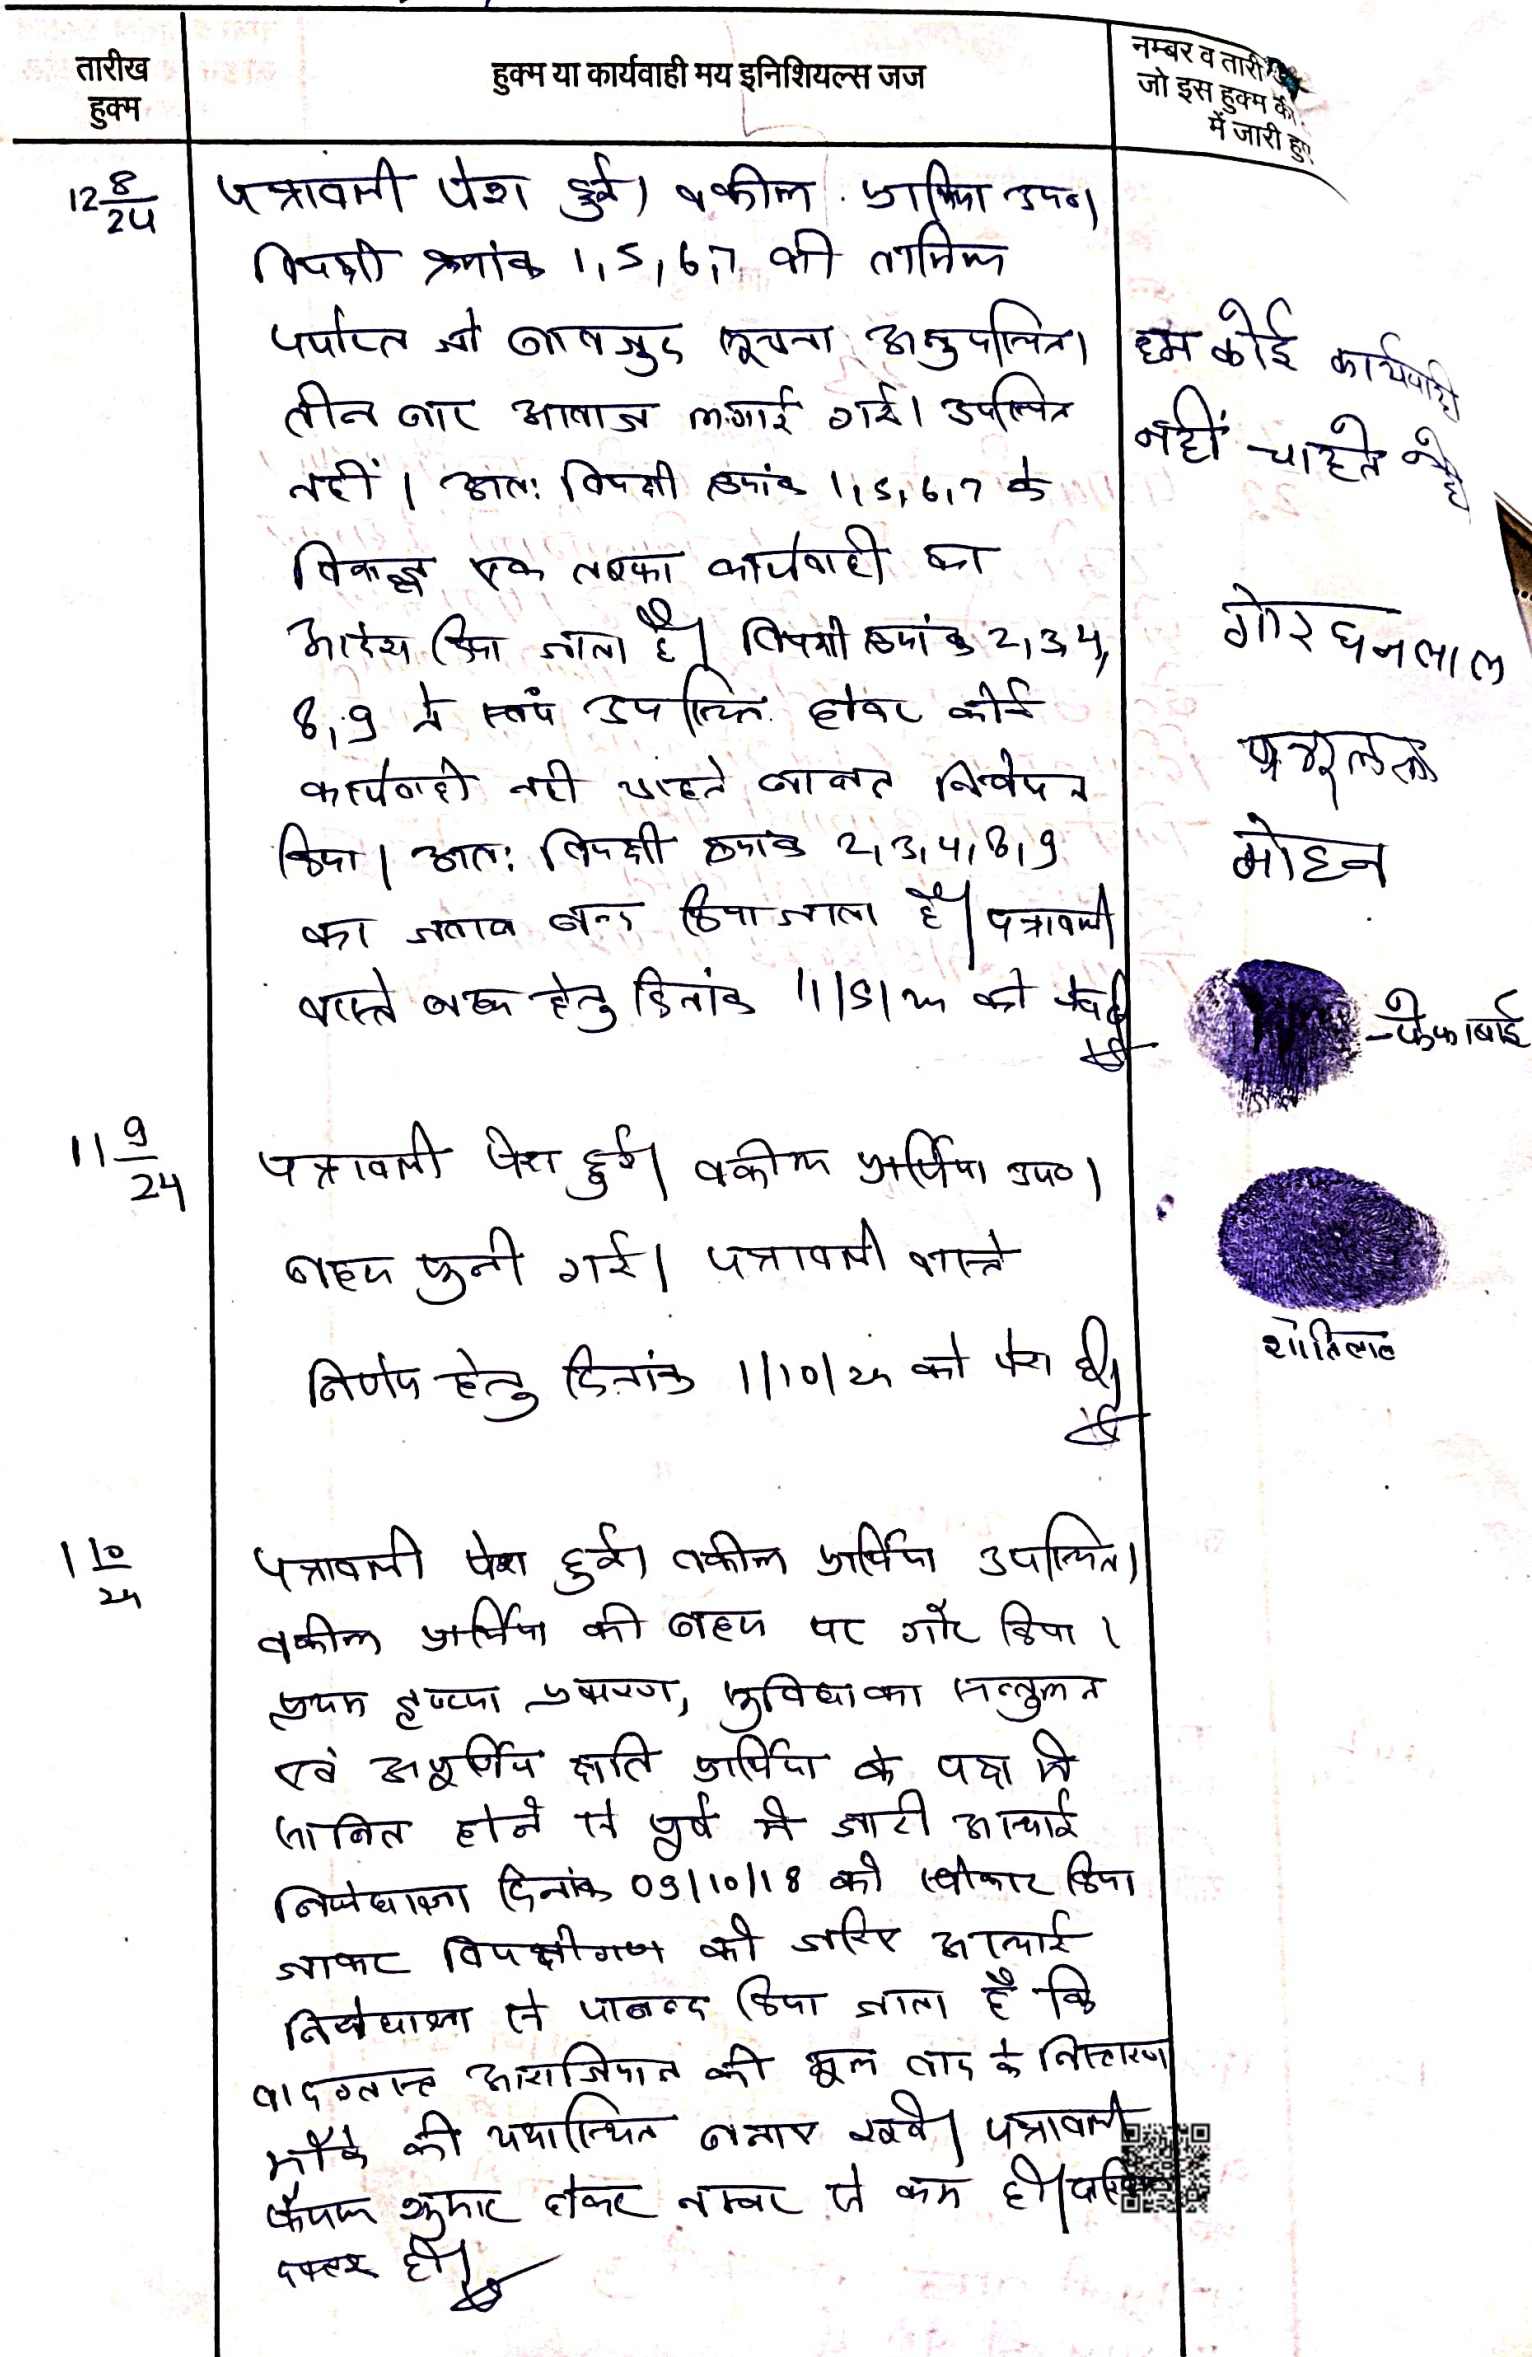 तारीख
हुक्म
हुक्म या कार्यवाही मय इनिशियल्स जज
नम्बर व तारीख
जो इस हुक्म की
में जारी हुए
12 8/24
पत्रावली पेश हुई। वकील प्रार्थिया उप०।
विपक्षी क्रमांक 1,5,6,7 की तामिल
पर्याप्त जो बावजुद सूचना अनुपस्थित।
तीन बार आवाज लगाई गई। उपस्थित
नहीं। अतः विपक्षी क्रमांक 1,5,6,7 के
विरूद्ध एक तरफा कार्यवाही का
आदेश किया जाता है। विपक्षी क्रमांक 2,3,4,
8,9 ने स्वयं उपस्थित होकर कोई
कार्यवाही नही चाहते बाबत निवेदन
किया। अतः विपक्षी क्रमांक 2,3,4,8,9
का जवाब बन्द किया जाता है। पत्रावली
वास्ते बहस हेतु दिनांक 11/9/24 को पेश हो।
हम कोई कार्यवाही
नहीं चाहते है
गोरधनलाल
मोहन
फेफाबाई
शांतिलाल
11 9/24
पत्रावली पेश हुई। वकील प्रार्थिया उप०।
बहस सुनी गई। पत्रावली वास्ते
निर्णय हेतु दिनांक 1/10/24 को पेश हो।
1 10/24
पत्रावली पेश हुई। वकील प्रार्थिया उपस्थित।
वकील प्रार्थिया की बहस पर गौर किया।
प्रथम दृष्टया प्रकरण, सुविधा का सन्तुलन
एवं अपूर्णिय क्षति प्रार्थिया के पक्ष मे
साबित होने से पूर्व मे जारी अस्थाई
निषेधाज्ञा दिनांक 09/10/18 को स्वीकार किया
जाकर विपक्षीगण को जरिए अस्थाई
निषेधाज्ञा से पाबन्द किया जाता है कि
वादग्रस्त आराजियात की मूल वाद के निस्तारण
मौके की यथास्थित बनाए रखे। पत्रावली
फैसल शुमार होकर नम्बर से कम हो। दाखिल
दफ्तर हो।